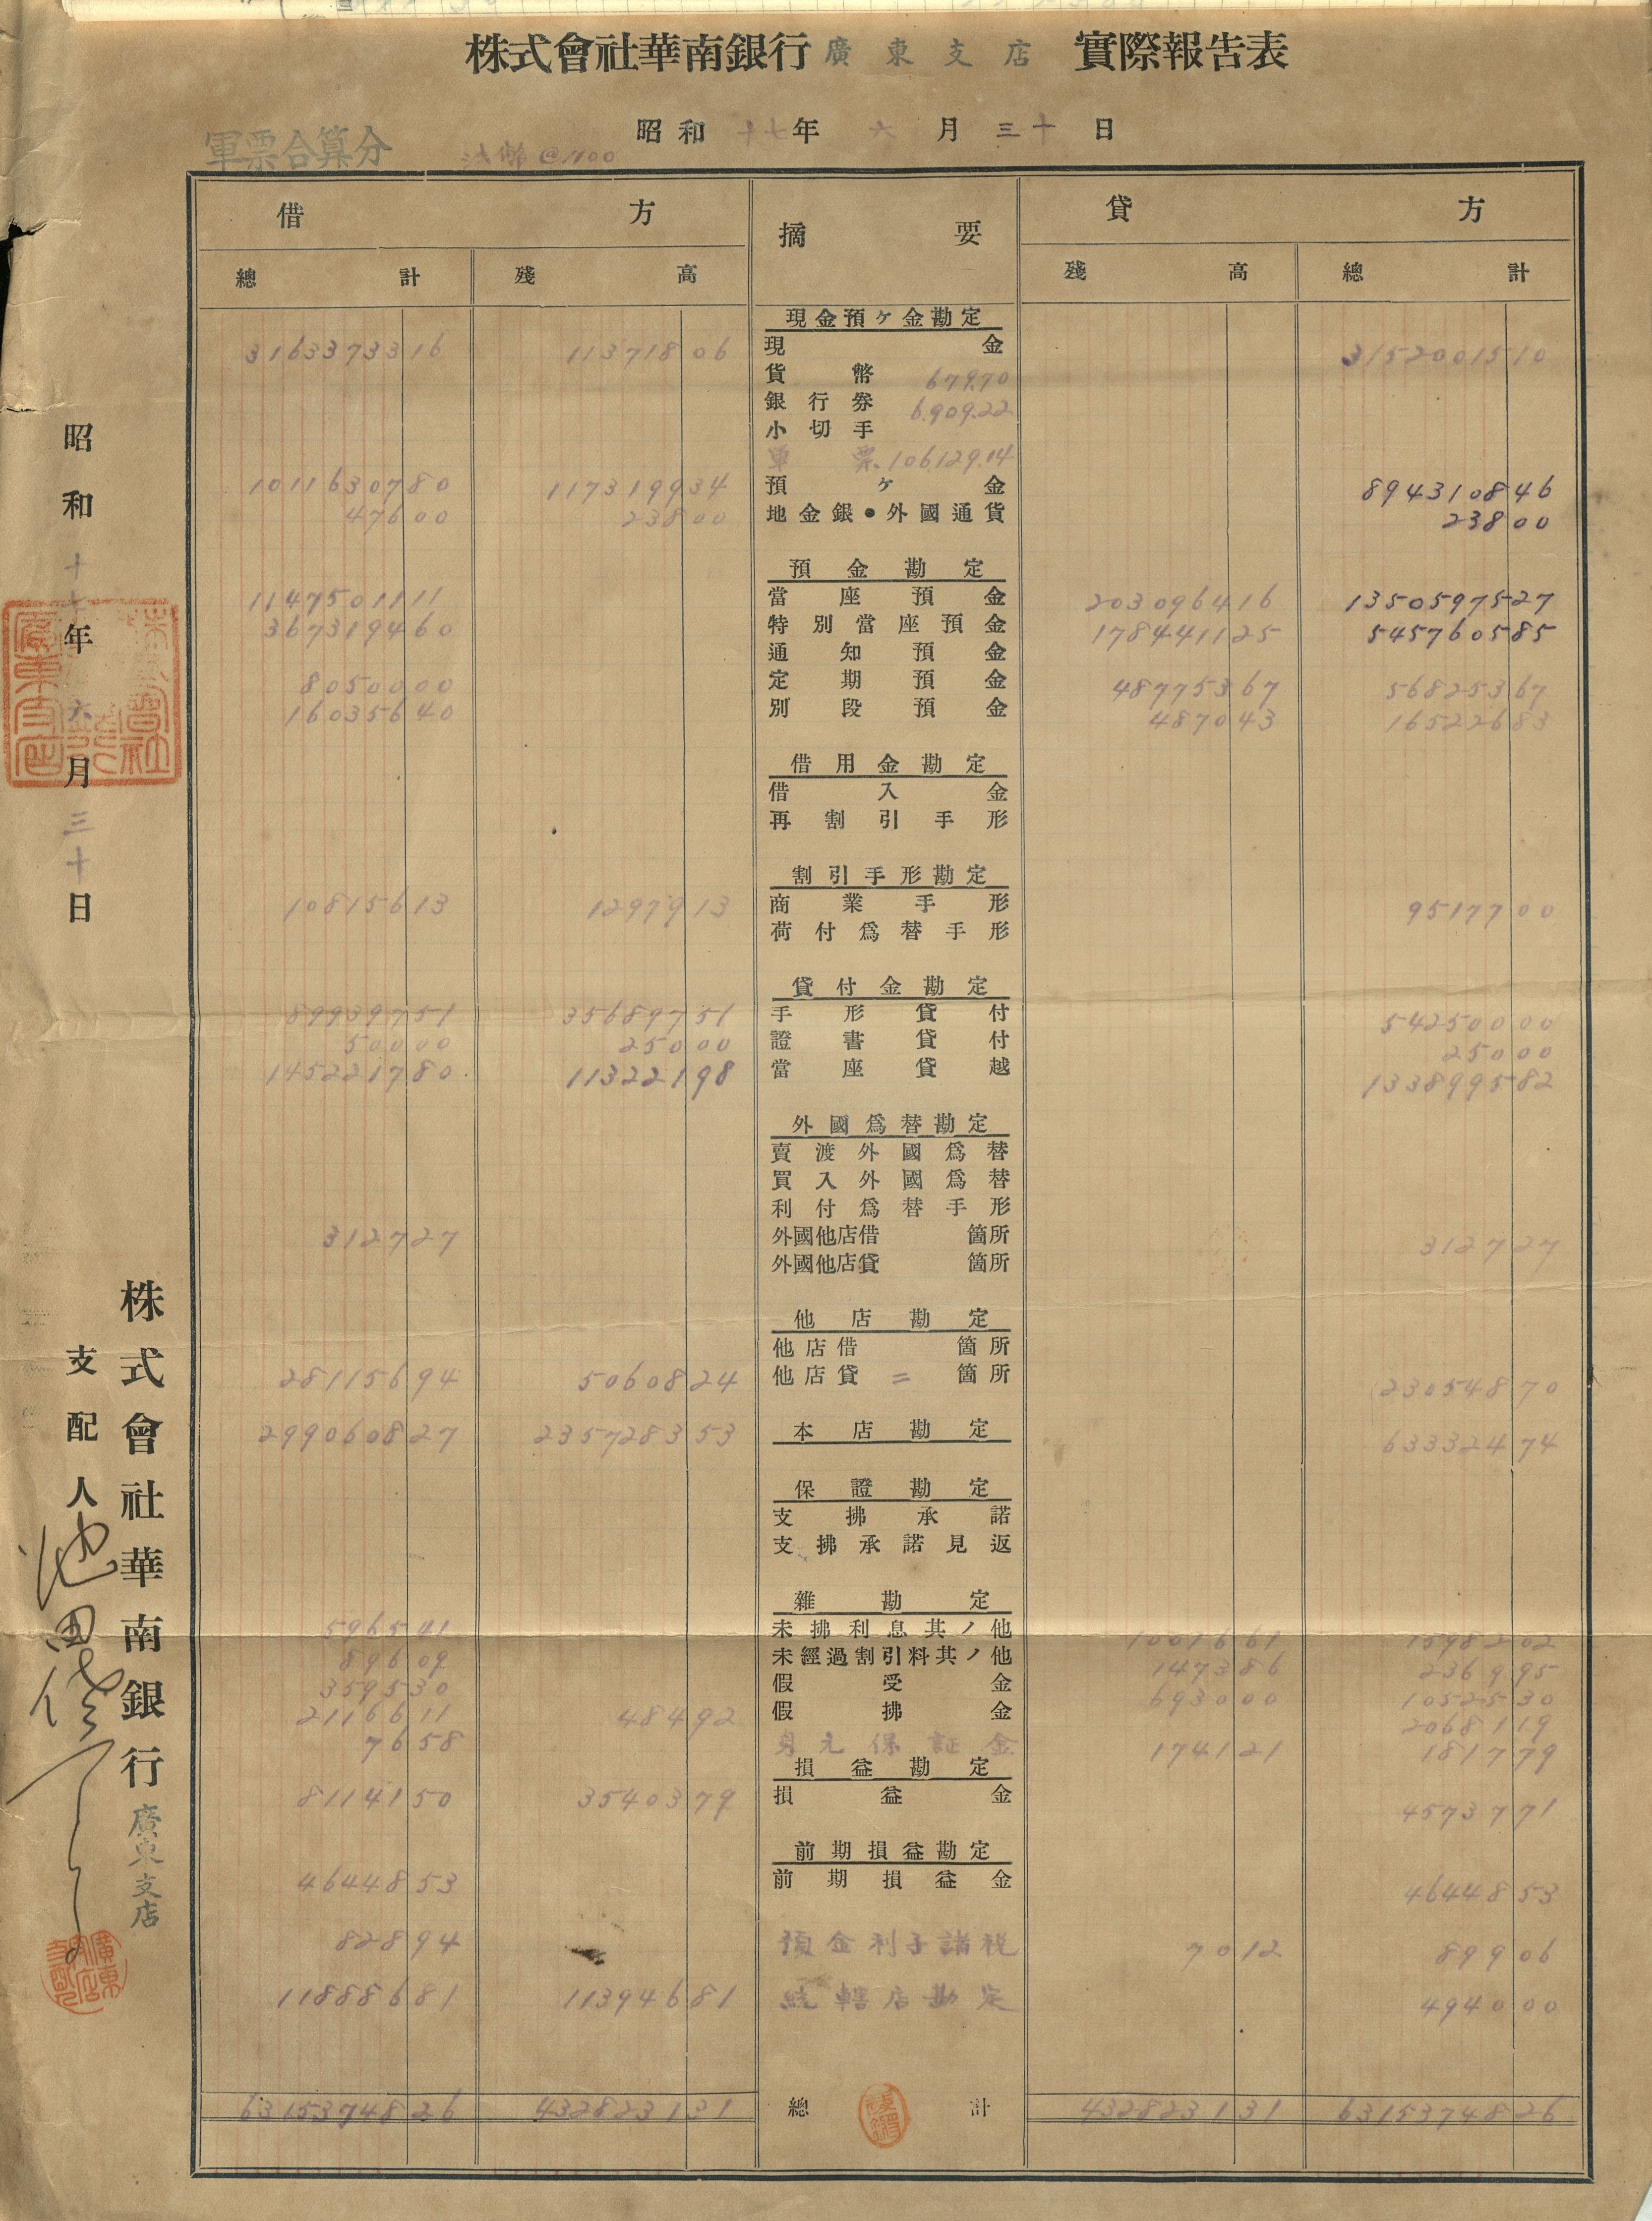 株式會社華南銀行 廣東支店 實際報告表
昭和 十七年 六月 三十日
軍票合算分
借方 摘要 貸方
總計 殘高 殘高 總計
現金預ケ金勘定
31633733 16 113718 06 現金 31520015 10
貨幣 679.70
銀行券 6.909.22
小切手
軍票 106,129.14
10116307 80 1173199 34 預ケ金 8943108 46
476 00 238 00 地金銀●外國通貨 238 00
預金勘定
11475011 11 當座預金 2030964 16 13505975 27
3673194 60 特別當座預金 1784411 25 5457605 85
通知預金
80500 00 定期預金 487753 67 568253 67
160356 40 別段預金 4870 43 165226 83
借用金勘定
借入金
再割引手形
割引手形勘定
108156 13 12979 13 商業手形 95177 00
荷付爲替手形
貸付金勘定
899397 51 356897 51 手形貸付 542500 00
500 00 250 00 證書貸付 250 00
1452217 80 113221 98 當座貸越 1338995 82
外國爲替勘定
賣渡外國爲替
買入外國爲替
利付爲替手形
3127 27 外國他店借 箇所 3127 27
外國他店貸 箇所
他店勘定
他店借 箇所
281156 94 50608 24 他店貸 二 箇所 230548 70
2990608 27 2357283 53 本店勘定 633324 74
保證勘定
支拂承諾
支拂承諾見返
雜勘定
5965 41 未拂利息其ノ他 10016 61 15982 02
896 09 未經過割引料其ノ他 1473 86 2369 95
3595 30 假受金 6930 00 10525 30
21166 11 484 92 假拂金 20681 19
76 58 身元保証金 1741 21 1817 79
損益勘定
81141 50 35403 79 損益金 45737 71
前期損益勘定
46448 53 前期損益金 46448 53
828 94 預金利子諸税 70 12 899 06
118886 81 113946 81 統轄店勘定 4940 00
63153748 26 4328231 31 總計 4328231 31 63153748 26
昭和十七年六月三十日
株式會社華南銀行廣東支店
支配人 池田